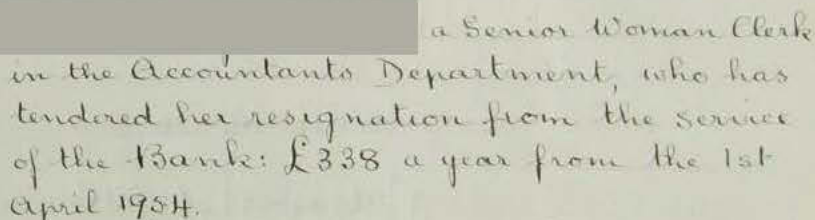 a Senior Woman Clerk
in the Accountants Department, who has
tendered her resignation from the service
of the Bank: £338 a year from the 1st
April 1954.